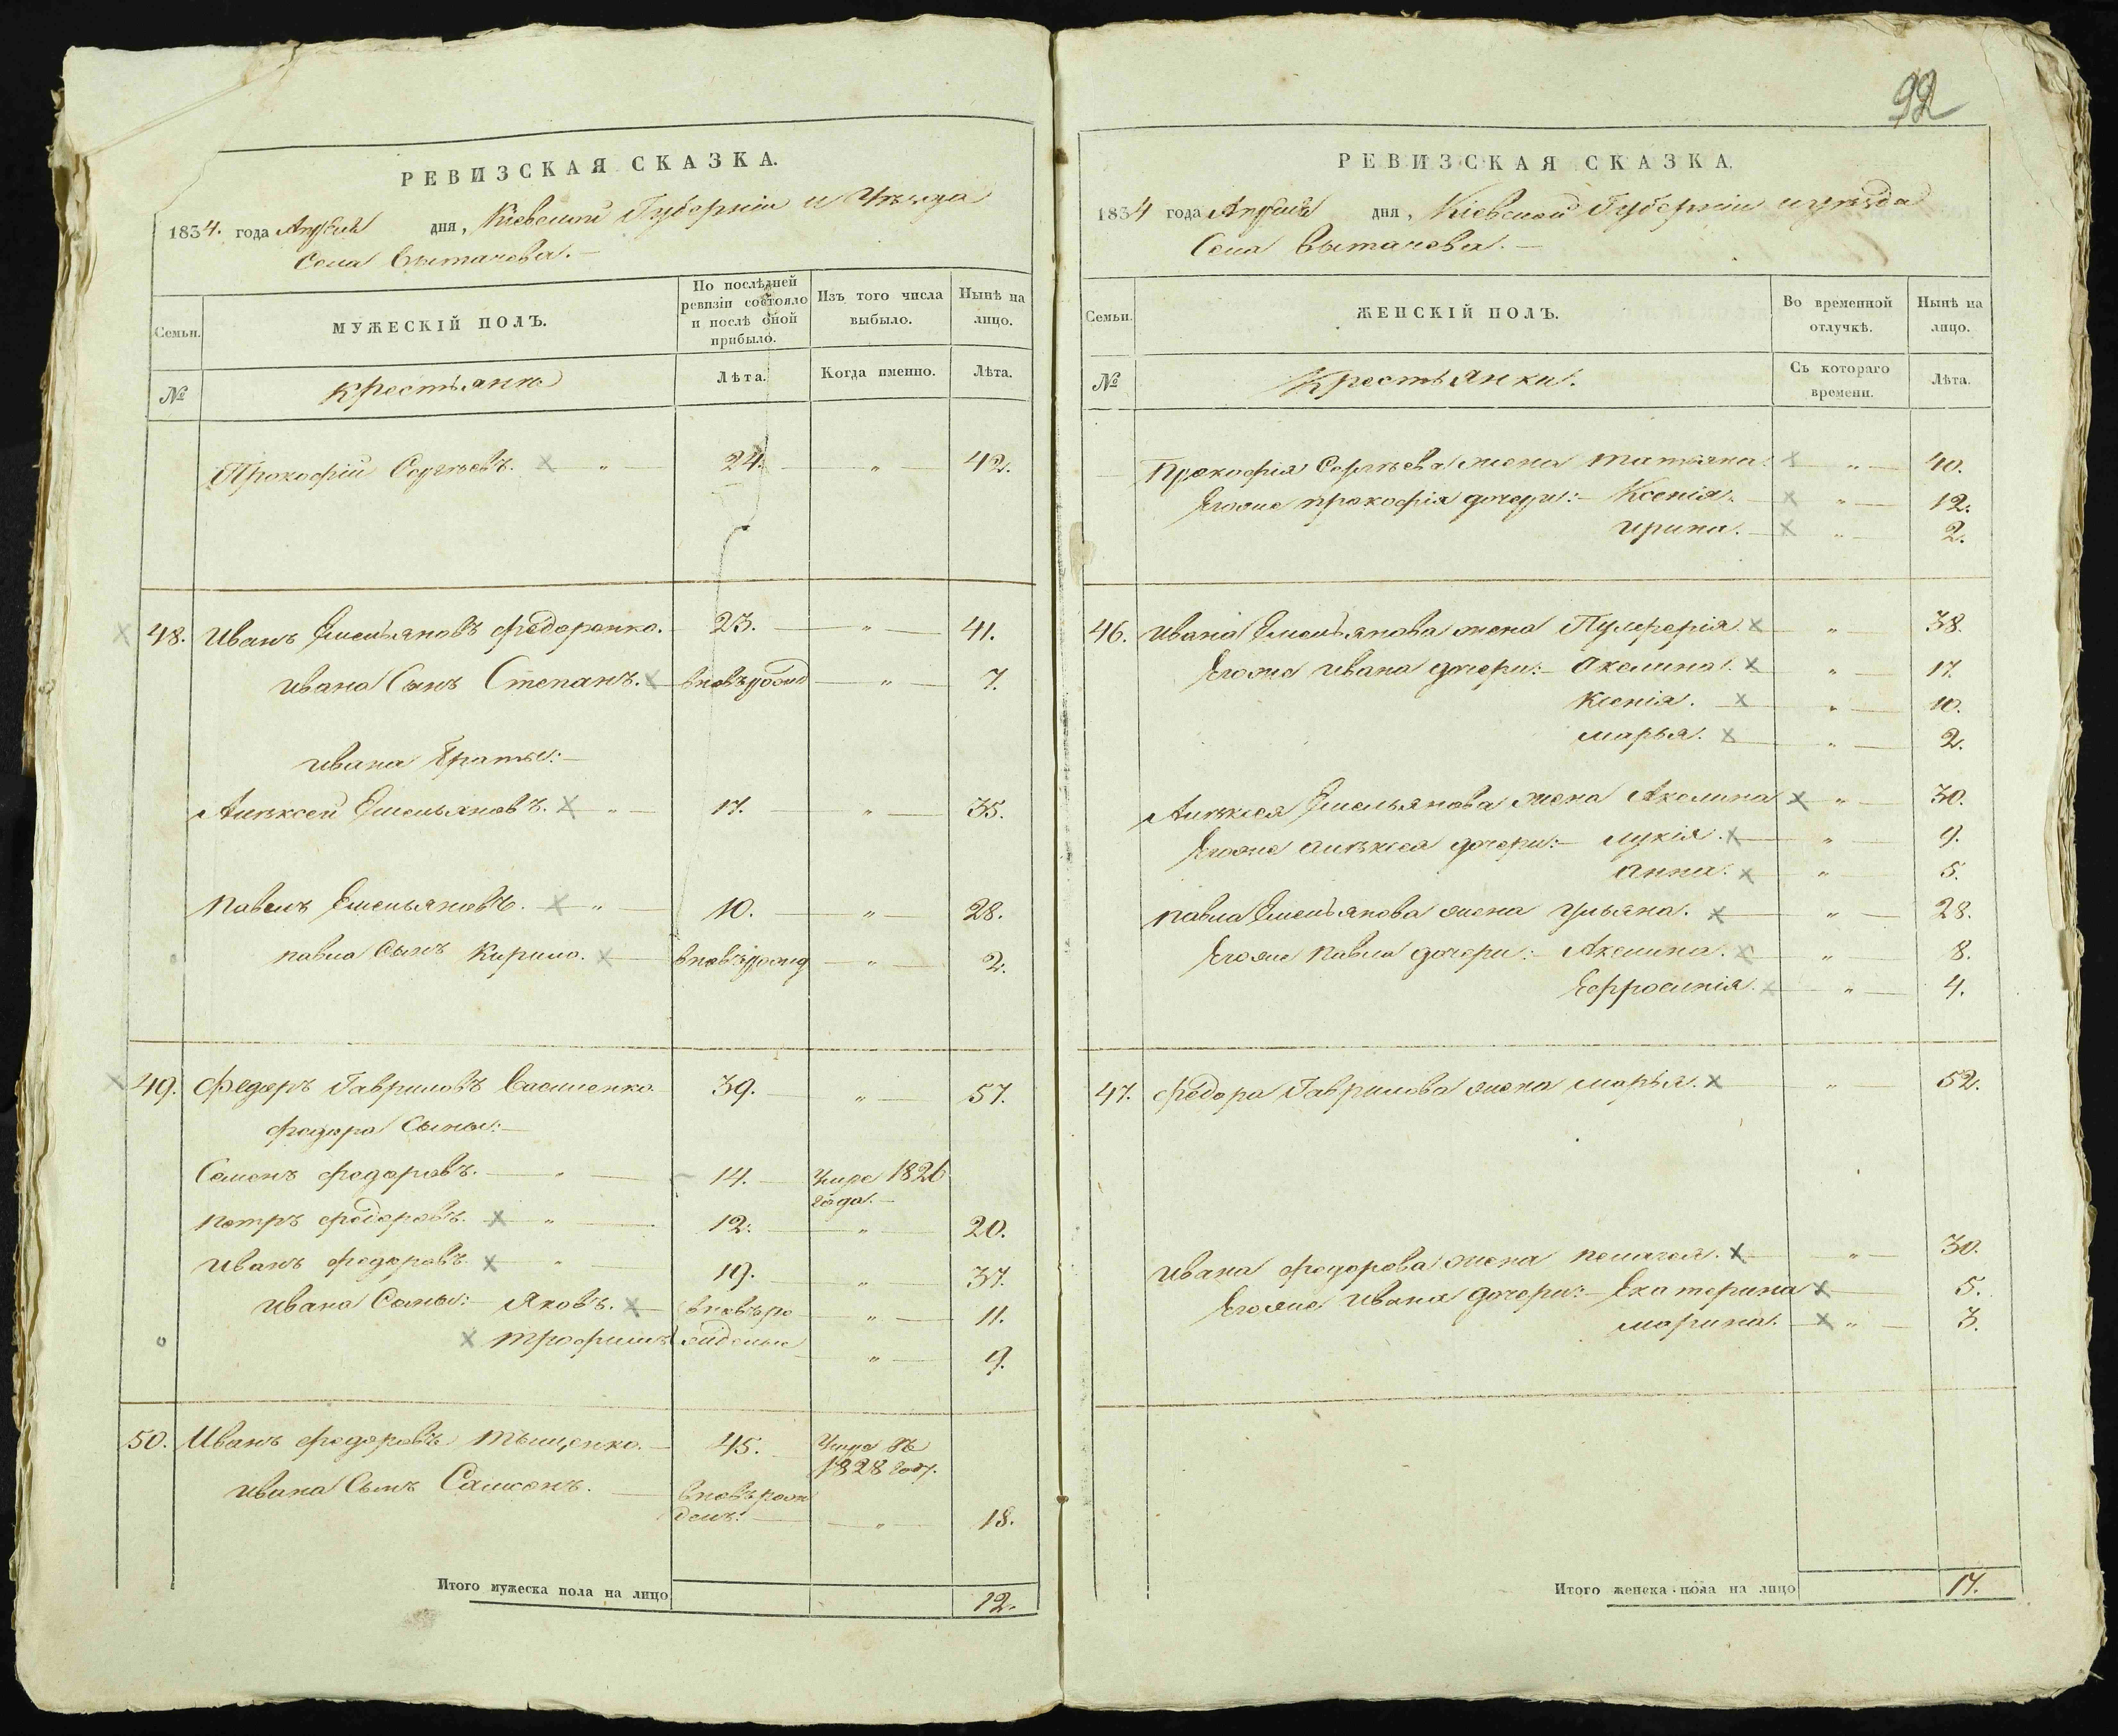 РЕВИЗСКАЯ СКАЗКА.
1834. года Апреля дня, Кіевской Губерніи и Уѣзда
Села Вытачева. —
Семьи.
МУЖЕСКІЙ ПОЛЪ.
По послѣдней ревизіи состояло и послѣ оной прибыло.
Изъ того числа выбыло.
Нынѣ на лицо.
№
Крестьяне
Лѣта.
Когда именно.
Лѣта.
Прокофій Сергѣевъ. × — " — 24. — " — 42.
× 48. Иванъ Емельяновъ Федоренко. — 23. — " — 41.
Ивана Сынъ Степанъ. × — вновърожд — " — 7.
Ивана Братья: —
Алѣксей Емельяновъ. × — " — 17. — " — 35.
Павелъ Емельяновъ. × — " — 10. — " — 28.
Павла Сынъ Кирило. × — вновърожд — " — 2.
× 49. Федоръ Гавриловъ Василенко 39. — " — 57.
Федора Сыны: —
Семенъ Федоровъ. — " — 14. — Умре 1826
года. —
Петръ Федоровъ. × — " — 12. — " — 20.
Иванъ Федоровъ. × — " — 19. — " — 37.
Ивана Сыны: — Яковъ. × — вновъро — " — 11.
× Трофимъ жденые — " — 9.
50. Иванъ Федоровъ Тыщенко. — 45. — Умре въ
1828 году.
Ивана Сынъ Самсонъ. — вновърож
денъ. — " — 18.
Итого мужеска пола на лицо 12.
92
РЕВИЗСКАЯ СКАЗКА.
1834 года Апреля дня, Кіевской Губерніи и уѣзда
Села Вытачева. —
Семьи.
ЖЕНСКІЙ ПОЛЪ.
Во временной отлучкѣ.
Нынѣ на лицо.
№
Крестьянки.
Съ котораго времени.
Лѣта.
Прокофія Сергѣева жена Татьяна. × — " — 40.
Егоже Прокофія дочери: — Ксенія. — × — " — 12.
Ирина. — × — " — 2.
46. Ивана Емельянова жена Пулхерія. × — " — 38.
Егоже Ивана дочери: — Акелина. × — " — 17.
Ксенія. — × — " — 10.
Марья. × — " — 2.
Алѣксея Емельянова жена Акелина × — " — 30.
Егоже Алѣксея дочери: — Лукія. × — " — 9.
Анна. × — " — 5.
Павла Емельянова жена Ульяна. × — " — 28.
Егоже Павла дочери: — Акелина. × — " — 8.
Ефросинія. × — " — 4.
47. Федора Гаврилова жена Марья. × — " — 52.
Ивана Федорова жена Пелагея. × — " — 30.
Егоже Ивана дочери: — Екатерина × — 5.
Марина. — × — " — 3.
Итого женска пола на лицо 17.